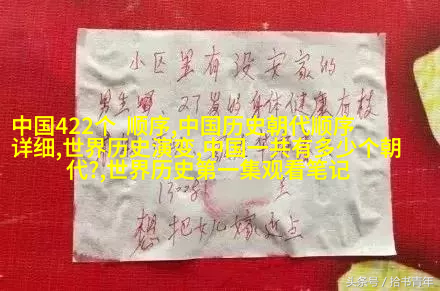 小区里有没安家的
男生嘛 27岁的身体健康有技
中国422个 顺序,中国历史朝代顺序
详细,世界历史演变,中国一共有多少个朝
代?,世界历史第一集观看笔记
想把女儿嫁近点
头条号/拾书青年